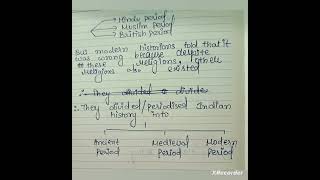 Hindu period
Muslim Period
British Period
But modern historians told that it
was wrong because despite
these religions, other
religions also existed
∴ They divided divide
∴ They divided/periodised Indian
history into
Ancient Medieval Modern
Period Period Period
XRecorder